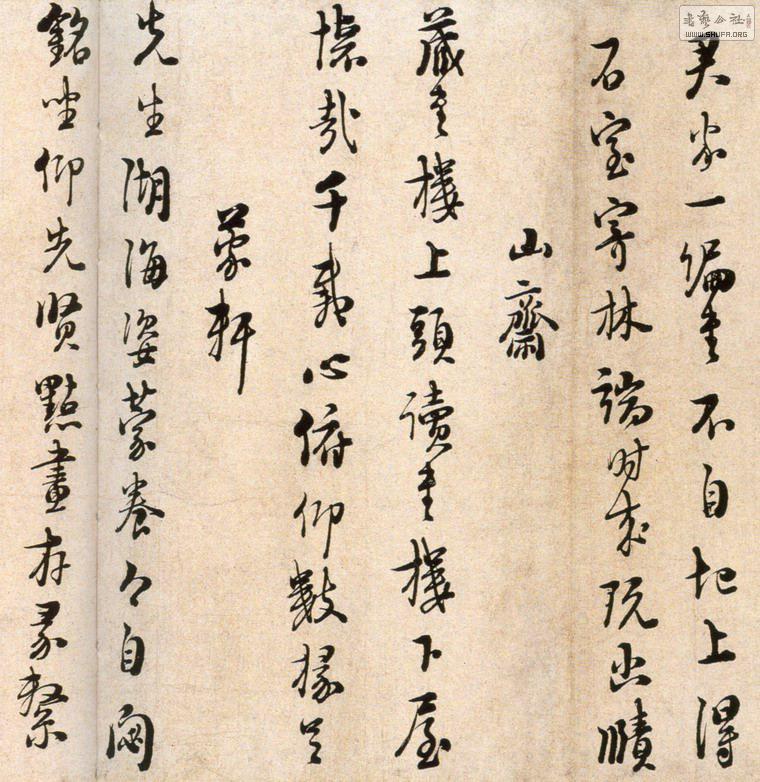 君家一編書不自圯上得
石室寄林端時来玩幽賾
山齋
藏書樓上頭讀書樓下屋
懷哉千載心俯仰數椽足
蒙軒
先生湖海姿蒙養今自閟
銘坐仰先賢點畫存彖繫
書藝公社
WWW.SHUFA.ORG